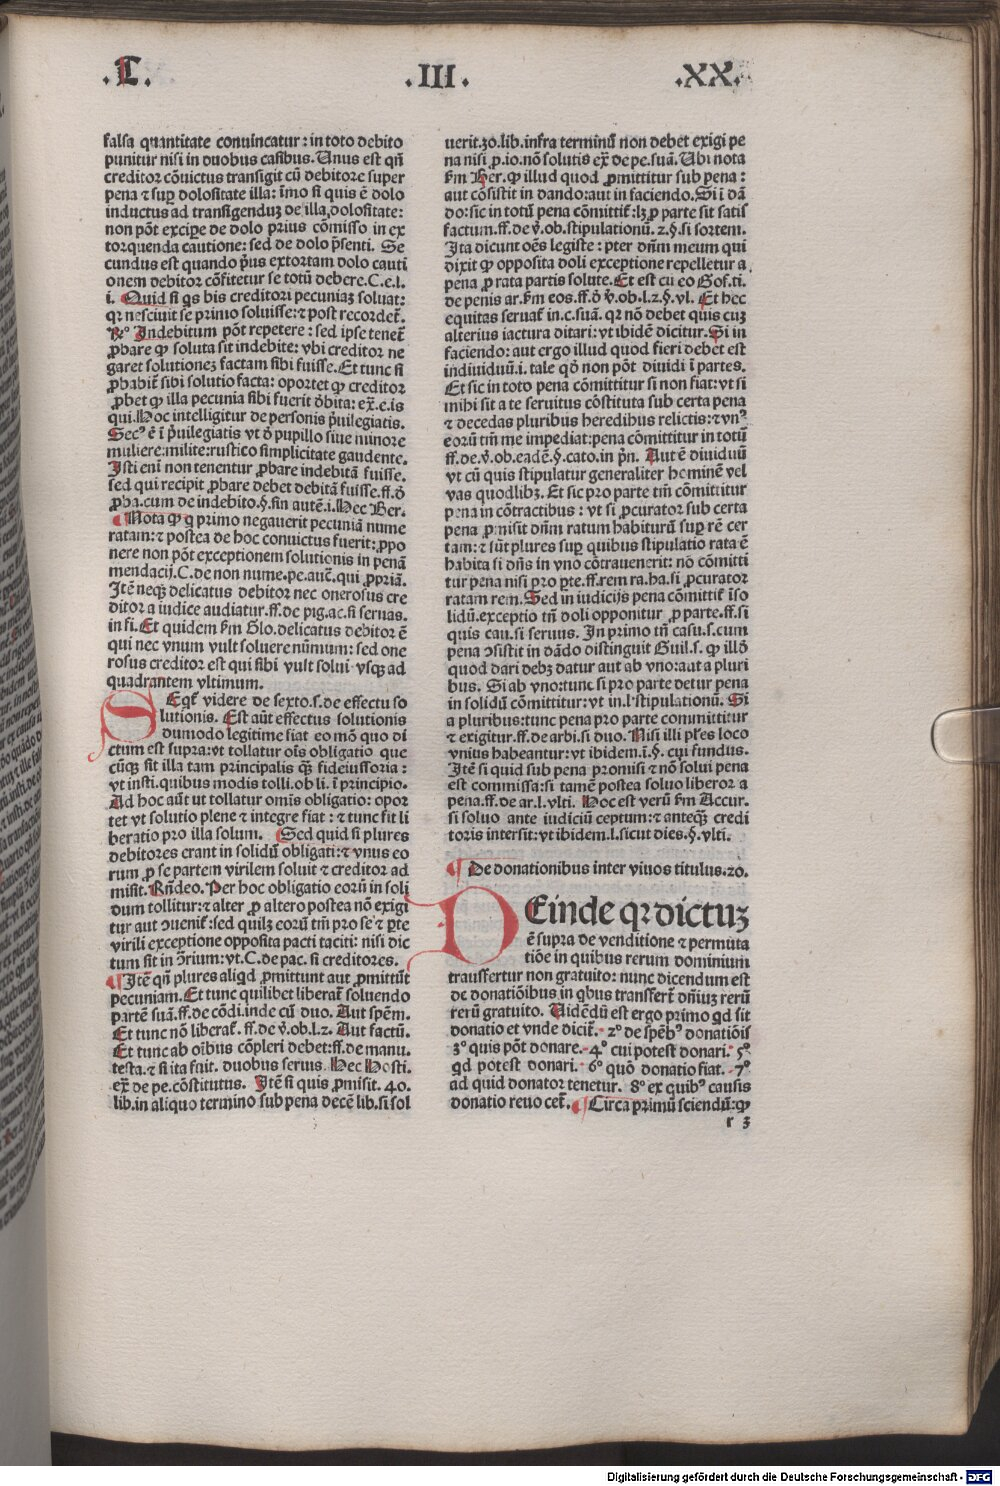 .L. .III. .XX.
falsa quantitate conuincatur : in toto debito
punitur nisi in duobus casibus. Unus est qñ
creditor cõuictus transigit cũ debitore super
pena ⁊ suꝑ dolositate illa: ĩmo si quis ẽ dolo
inductus ad transigenduꝫ de illa dolositate:
non põt exciꝑe de dolo prius cõmisso in ex
torquenda cautione: sed de dolo p̃senti. Se
cundus est quando p̃us extortam dolo cauti
onem debitor cõfitetur se totũ debere. C. e. l.
i. Quid si qͥs bis creditori pecuniaꝫ soluat:
qꝛ nesciuit se primo soluisse: ⁊ post recordet̃.
Rº. Indebitum põt repetere : sed ipse tenet̃
ꝓbare ꝙ soluta sit indebite: vbi creditor ne
garet solutioneꝫ factam sibi fuisse. Et tunc si
ꝓbabit̃ sibi solutio facta: oportet ꝙ creditor
ꝓbet ꝙ illa pecunia sibi fuerit d̾bita: ex̃. e. is
qui. Hoc intelligitur de personis p̃uilegiatis.
Secꝰ ẽ ĩ p̃uilegiatis vt ꝺ̾ pupillo siue minore
muliere: milite: rustico simplicitate gaudente.
Isti eni non tenentur ꝓbare indebitã fuisse.
sed qui recipit ꝓbare debet debitã fuisse. ff. ꝺ̾
ꝓba. cum de indebito. §. sin autẽ. i. Hec Ber.
¶ Nota ꝙ q̇ primo negauerit pecuniã nume
ratam: ⁊ postea de hoc conuictus fuerit: ꝓpo
nere non põt exceptionem solutionis in penã
mendacij. C. de non nume. pe. auc̃. qui ꝓpriã.
Itẽ neqꝫ delicatus debitor nec onerosus cre
ditor a iudice audiatur. ff. de pig. ac. si seruas.
in fi. Et quidem ẜm Glo. delicatus debitor ẽ
qui nec vnum vult soluere nũmum: sed one
rosus creditor est qui sibi vult solui vsqꝫ ad
quadrantem vltimum.
SEqť videre de sexto. s. de effectu so
lutionis. Est aũt effectus solutionis
dumodo legitime fiat eo mõ quo di
ctum est supra: vt tollatur oĩs obligatio que
cũqꝫ sit illa tam principalis q̃ꝫ fideiussoria :
vt insti. quibus modis tolli. ob li. ĩ principio.
Ad hoc aũt ut tollatur omĩs obligatio: opor
tet vt solutio plene ⁊ integre fiat : ⁊ tunc fit li
beratio pro illa solum. Sed quid si plures
debitores erant in solidũ obligati: ⁊ vnus eo
rum ꝓ se partem virilem soluit ⁊ creditor ad
misit. Rñdeo. Per hoc obligatio eorũ in soli
dum tollitur: ⁊ alter ꝓ altero postea nõ exigi
tur aut ↄuenit̃: sed quilꝫ eorũ tm̃ pro se ⁊ ꝑte
virili exceptione opposita pacti taciti: nisi dic
tum sit in ↄ̃rium: vt. C. de pac. si creditores.
¶ Itẽ qñ plures aliqd̃ ꝓmittunt aut ꝓmittũt
pecuniam. Et tunc quilibet liberat̃ soluendo
partẽ suã. ff. de cõdi. inde cũ duo. Aut spẽm.
Et tunc nõ liberat̃. ff. de v̾. ob. l. 2. Aut factũ.
Et tunc ab oĩbus cõpleri debet: ff. de manu.
testa. ⁊ si ita fuit. duobus seruus. Hec Hosti.
ex̃ de pe. cõstitutus. Itẽ si quis ꝓmisit. 40.
lib. in aliquo termino sub pena decẽ lib. si sol
uerit. 30. lib. infra terminũ non debet exigi pe
na nisi ꝓ. 10. nõ solutis ex̃ de pe. suã. Ubi nota
ẜm Her. ꝙ illud quod ꝓmittitur sub pena :
aut cõsistit in dando: aut in faciendo. Si ĩ dã
do: sic in totũ pena cõmittit̃: lꝫ ꝓ parte sit satis
factum. ff. de v̾. ob. stipulationũ. 2. §. si sortem.
Ita dicunt oẽs legiste : p̃ter dñm meum qui
dixit ꝙ opposita doli exceptione repelletur a
pena ꝓ rata partis solute. Et est cũ eo Gof. ti.
de penis ar. ẜm eos. ff. ꝺ̾ v̾. ob. l. 2. §. vl. Et hec
equitas seruat̃ in. c. suã. qꝛ nõ debet quis cuꝫ
alterius iactura ditari: vt ibidẽ dicitur. Si in
faciendo: aut ergo illud quod fieri debet est
indiuiduũ. i. tale qd̃ non põt diuidi ĩ partes.
Et sic in toto pena cõmittitur si non fiat: vt si
mihi sit a te seruitus cõstituta sub certa pena
⁊ decedas pluribus heredibus relictis: ⁊ vnꝰ
eorũ tm̃ me impediat: pena cõmittitur in totũ
ff. de. v̾. ob. eadẽ. §. cato. in pñ. Aut ẽ diuiduũ
vt cũ quis stipulatur generaliter hominẽ vel
vas quodlibꝫ. Et sic pro parte tm̃ cõmittitur
pena in cõtractibus : vt si ꝓcurator sub certa
pena ꝓmisit dñm ratum habiturũ suꝑ rẽ cer
tam: ⁊ sũt plures suꝑ quibus stipulatio rata ẽ
habita si dñs in vno cõtrauenerit: nõ cõmitti
tur pena nisi pro ꝑte. ff. rem ra. ha. si ꝓcurator
ratam rem. Sed in iudicijs pena cõmittit̃ ĩ so
lidũ. exceptio tñ doli opponitur ꝓ parte. ff. si
quis cau. si seruus. In primo tñ casu. s. cum
pena ↄsistit in dãdo distinguit Guil. s. ꝙ illd̃
quod dari debꝫ datur aut ab vno: aut a pluri
bus. Si ab vno: tunc si pro parte detur pena
in solidũ cõmittitur: vt in. l. stipulationũ. Si
a pluribus: tunc pena pro parte committitur
⁊ exigitur. ff. de arbi. si duo. Nisi illi plr̃es loco
vnius habeantur: vt ibidem. i. §. cui fundus.
Itẽ si quid sub pena promisi ⁊ nõ solui pena
est commissa: si tamẽ postea soluo liberor a
pena. ff. de ar. l. vlti. Hoc est verũ ẜm Accur.
si soluo ante iudiciũ ceptum: ⁊ anteqꝫ credi
toris intersit: vt ibidem. l. sicut dies. §. vlti.
¶ De donationibus inter viuos titulus. 20.
DEinde qꝛ dictuꝫ
ẽ supra de venditione ⁊ permuta
tiõe in quibus rerum dominium
transfertur non gratuito: nunc dicendum est
de donatiõibus in qͥbus transfert̃ dñiuꝫ rerũ
rerũ gratuito. Uidẽdũ est ergo primo qd̃ sit
donatio et vnde dicit̃. 2º de spẽbꝰ donatiõis
3º quis põt donare. 4º cui potest donari. 5º
qd̃ potest donari. 6º quõ donatio fiat. 7º
ad quid donator tenetur. 8º ex quibꝰ causis
donatio reuocet̃. ¶ Circa primũ sciendũ: ꝙ
r 3
Digitalisierung gefördert durch die Deutsche Forschungsgemeinschaft - DFG